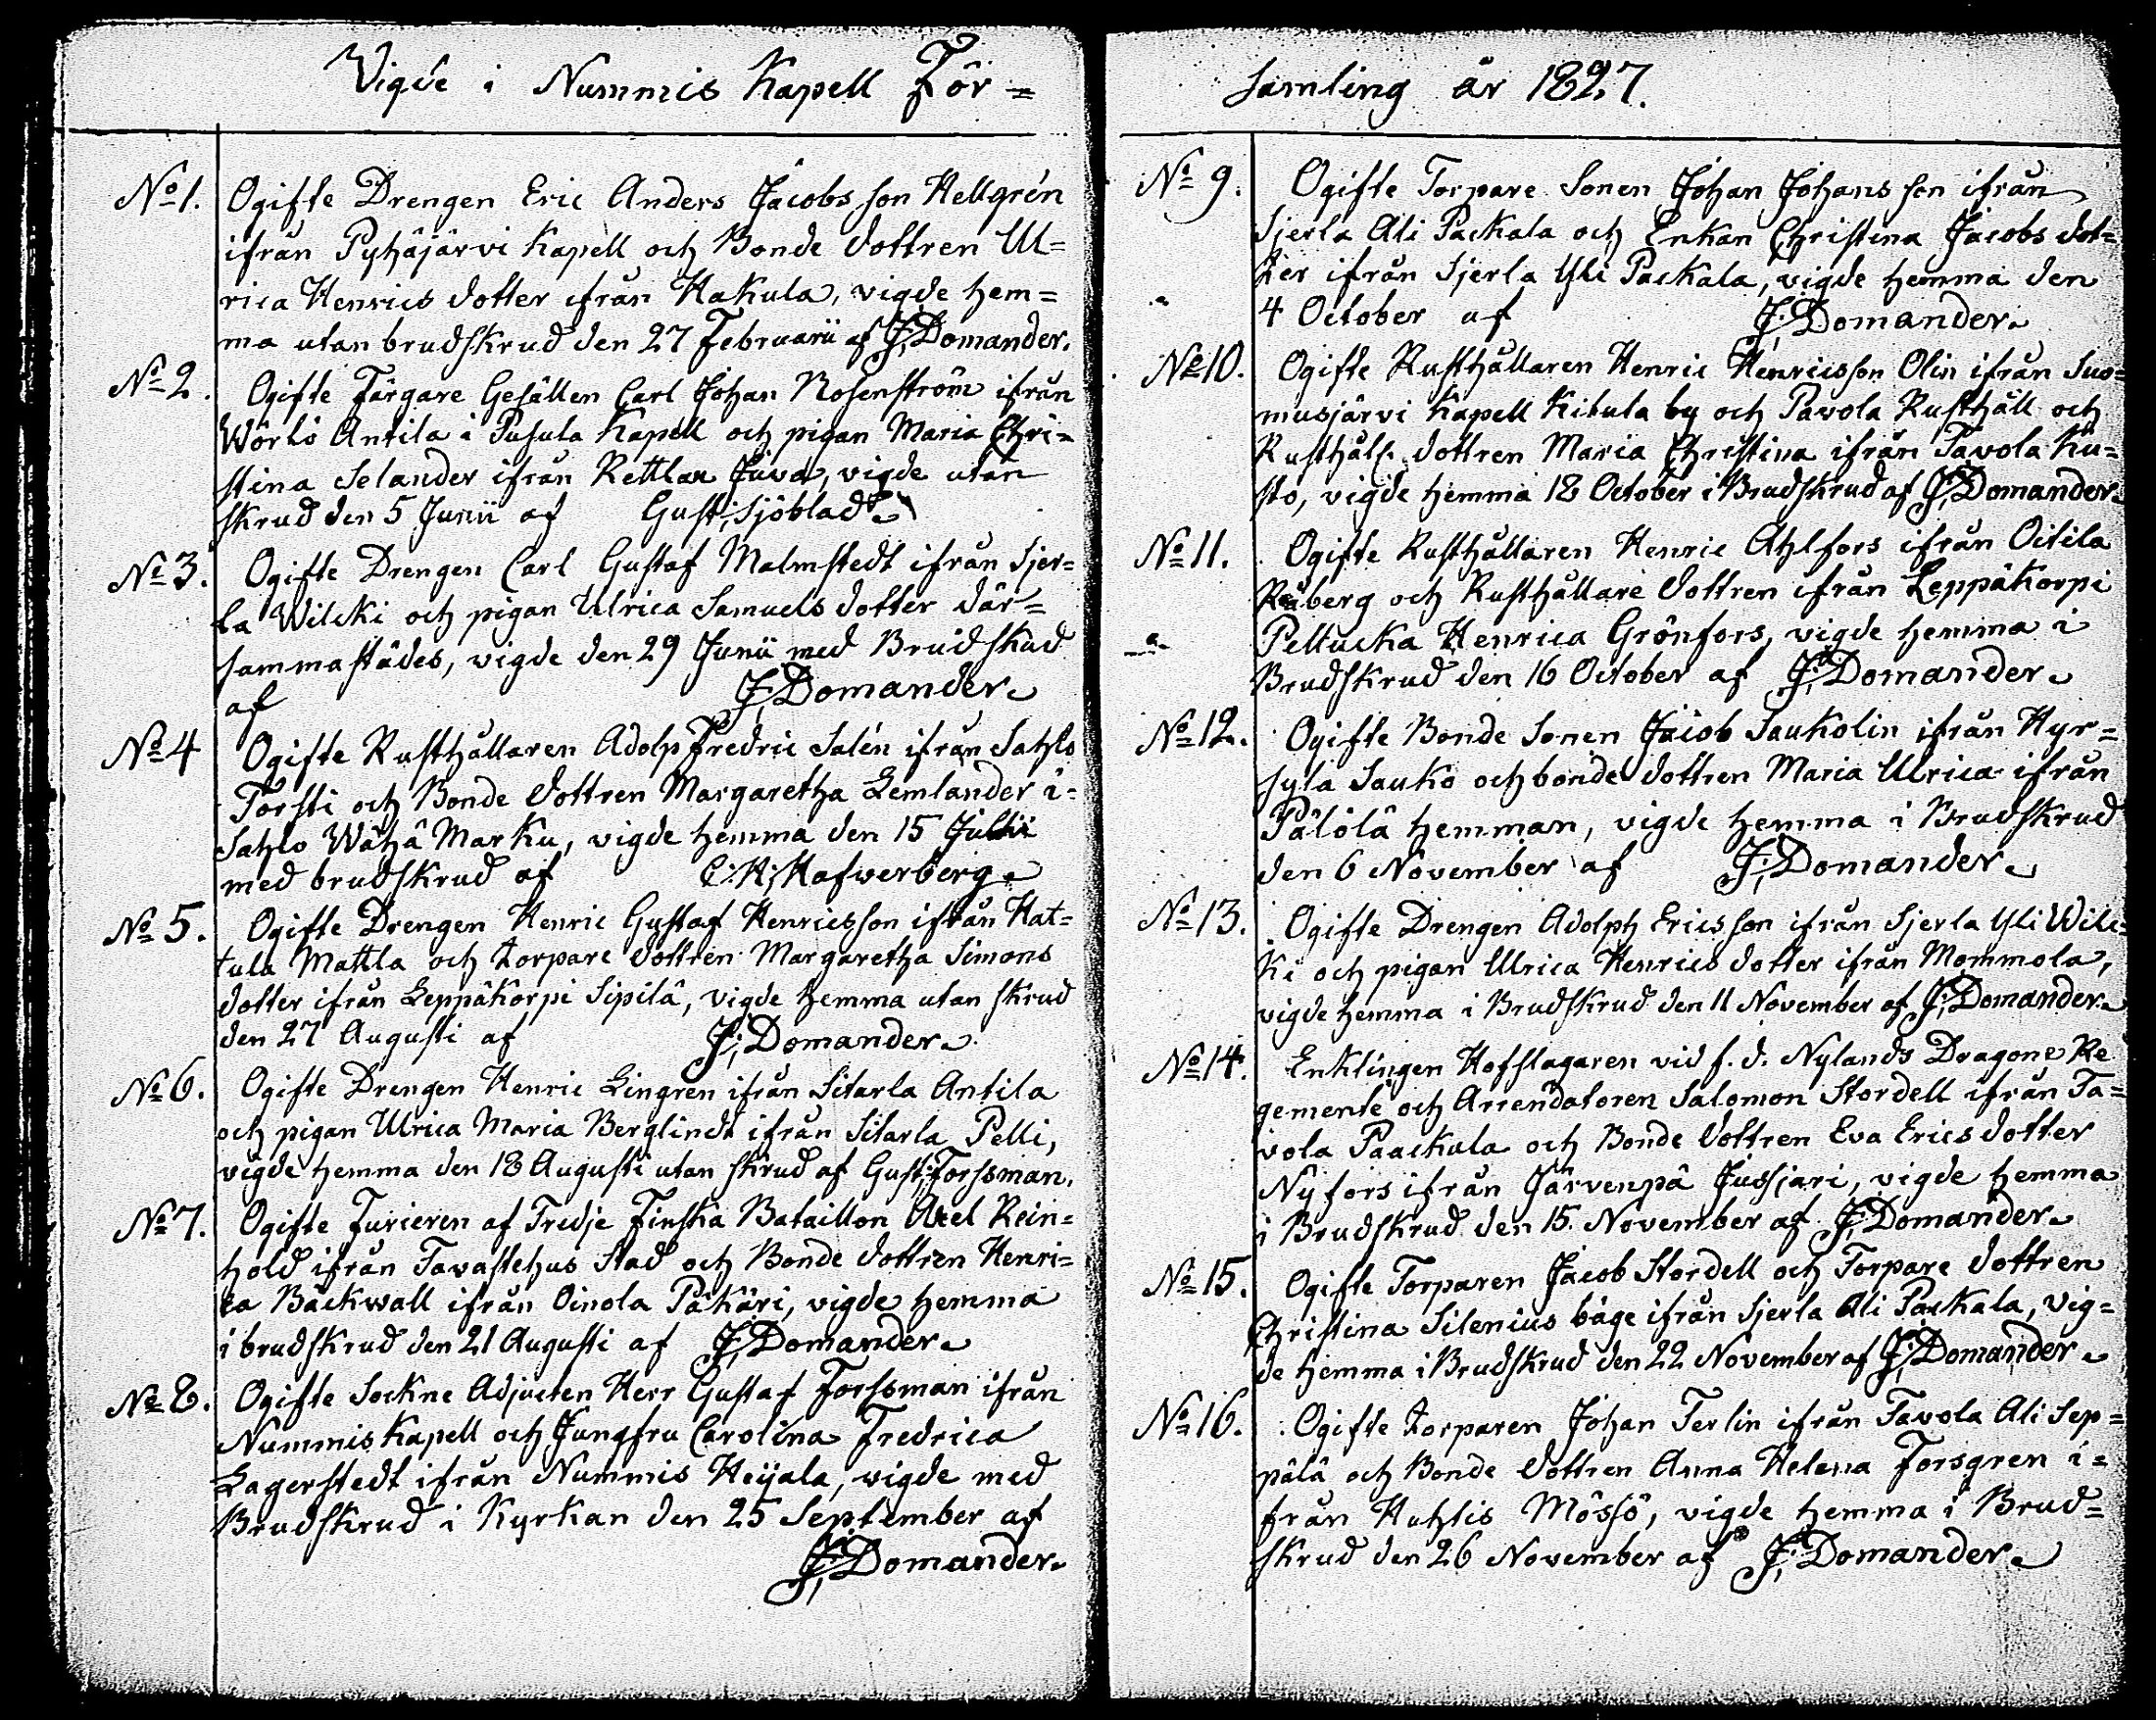 Vigde i Nummis Kapell För=
N:o 1. Ogifte Drengen Eric Anders Jacobsson Hellgrén
ifrån Pyhäjärvi Kapell och Bonde dottren Ul=
rica Henrics dotter ifrån Hakula, vigde hem=
ma utan brudskrud den 27 Februarii af J; Domander.
N:o 2. Ogifte Färgare Gesällen Carl Johan Rosenström ifrån
Wörlö Antila i Pusula Kapell och pigan Maria Chri=
stina Selander ifrån Rettlax Juva, vigde utan
skrud den 5 Junii af Gust; Sjöblad.
N:o 3. Ogifte Drengen Carl Gustaf Malmstedt ifrån Sjer=
la Wilcki och pigan Ulrica Samuels dotter där=
sammastädes, vigde den 29 Junii med Brudskud
af J; Domander.
N:o 4 Ogifte Rusthållaren Adolp Fredric Salén ifrån Sahlo
Torsti och Bonde dottren Margaretha Lemlander i=
Sahlo Wähä Marku, vigde hemma den 15 Julii
med brudskrud af C: H; Hafwerberg.
N:o 5. Ogifte Drengen Henric Gustaf Henricsson ifrån Hat=
tula Mattla och torpare dottren Margaretha Simons
dotter ifrån Leppäkorpi Sipilä, vigde hemma utan skrud
den 27 Augusti af J; Domander.
N:o 6. Ogifte Drengen Henric Lingren ifrån Sitarla Antila
och pigan Ulrica Maria Berglindt ifrån Sitarla Pelli,
vigde hemma den 18 Augusti utan skrud af Gust; Forssman.
N:o 7. Ogifte Furieren af Tredje Finska Bataillon Axel Rein=
hold ifrån Tavastehus Stad och Bonde dottren Henri=
ca Bäckwall ifrån Oinola Päkäri, vigde hemma
i brudskrud den 21 Augusti af J; Domander.
N:o 8. Ogifte Sockne Adjucten Herr Gustaf Forssman ifrån
Nummis Kapell och Jungfru Carolina Fredrica
Lagerstedt ifrån Nummis Heijala, vigde med
Brudskrud i Kyrkan den 25 September af
J; Domander.
samling år 1827.
N:o 9. Ogifte Torpare Sonen Johan Johansson ifrån
Sjerla Ali Packala och Enkan Christina Jacobs dot=
ter ifrån Sjerla Yli Packala, vigde hemma den
4 October af J; Domander.
N:o 10. Ogifte Rusthållaren Henric Henricsson Olin ifrån Suo=
musjärvi Kapell Kitula by och Pavola Rusthåll och
Rusthålls dottren Maria Christina ifrån Tavola Ku=
sto, vigde hemma 18 October i Brudskrud af J; Domander.
N:o 11. Ogifte Rusthållaren Henric Ahlfors ifrån Oitila
Råberg och Rusthållare dottren ifrån Leppäkorpi
Peltucka Henrica Grönfors, vigde hemma i
Brudskrud den 16 October af J; Domander.
N:o 12. Ogifte Bonde Sonen Jacob Saukolin ifrån Hyr=
syla Sauko och bonde dottren Maria Ulrica ifrån
Pälölä hemman, vigde hemma i Brudskrud
den 6 November af J; Domander.
N:o 13. Ogifte Drengen Adolph Ericsson ifrån Sjerla Yli Wilc=
ki och pigan Ulrica Henrics dotter ifrån Mommola,
vigde hemma i Brudskrud den 11 November af J; Domander.
N:o 14. Enklingen Hofslagaren vid f. d. Nylands Dragone Re
gemente och Arrendatoren Salomon Stordell ifrån Ta=
vola Paackula och Bonde dottren Eva Erics dotter
Nyfors ifrån Järvenpä Jussjari, vigde hemma
i Brudskrud den 15. November af J; Domander.
N:o 15. Ogifte Torparen Jacob Stordell och Torpare dottren
Christina Silenius båge ifrån Sjerla Ali Packala, vig=
de hemma i Brudskrud den 22 November af J; Domander.
N:o 16. Ogifte torparen Johan Terlin ifrån Tavola Ali Sep=
pälä och Bonde dottren Anna Helena Forsgren i=
från Huhtis Mössö, vigde hemma i Brud=
skrud den 26 November af J; Domander.